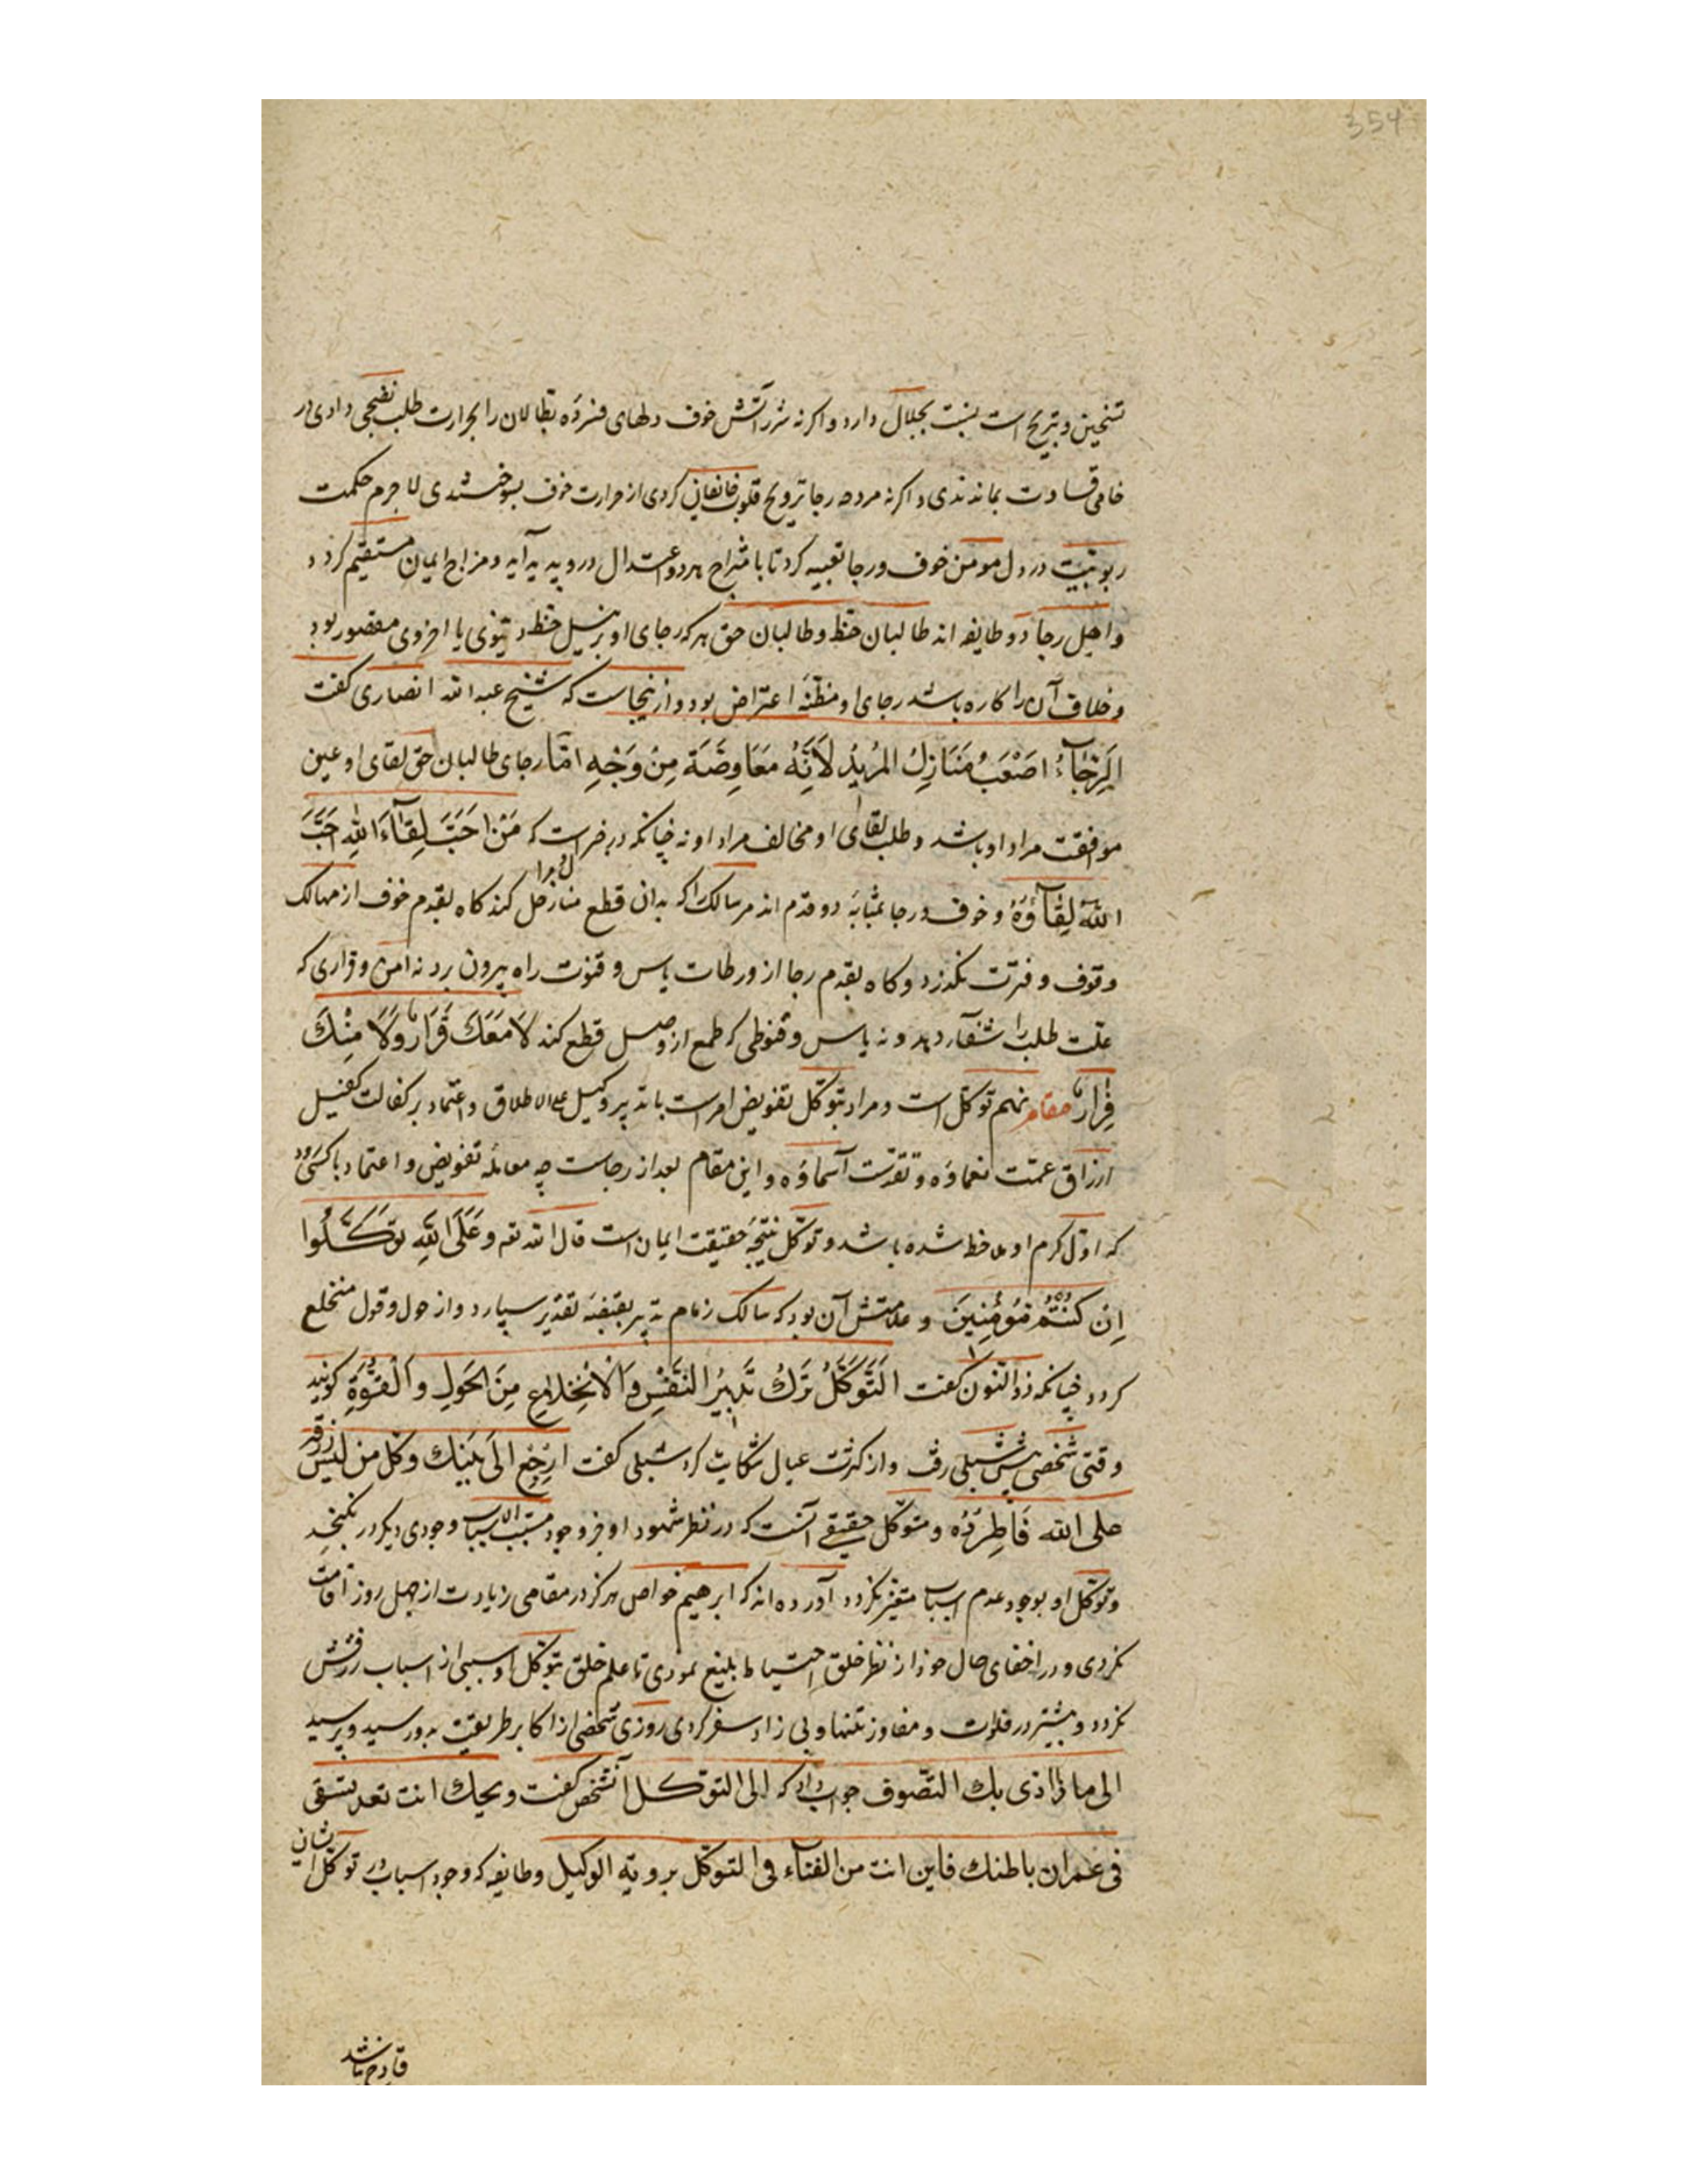 354
تسخین و تبریح است بنسبت بجبال دارد و اگر نه شرر آتش خوف دلهای فسرده بطالان را بحرارت طلب نضجی دادی در
خامی قساوت بماندندی و اگر نه مروحه رجا ترویح قلوب خائفان کردی از حرارت خوف بسوختندی لا جرم حکمت
ربوبیت در دل مومن خوف و رجا تعبیه کرد تا بامتزاج هر دو اعتدال درو پدید آید و مزاج ایمان مستقیم گردد
و اهل رجا دو طایفه اند طالبان حظ و طالبان حق هر که رجای او بر نیل حظ دنیوی یا اخروی مقصور بود
و خلاف آن را کاره باشد رجای او مظنّه اعتراض بود و ازینجاست که شیخ عبد الله انصاری گفت
اَلرَّجَاءُ اَضْعَبُ مَنَازِلُ المُرِیدُ لَاَنَّهُ مَعَاوِضَة مِنْ وَجْهِ امّا رجای طالبان حق لقای او عین
موافقت مراد او باشد و طلب لقای او مخالف مراد او نه چنانکه در خبر است که مَنْ اَحَبَّ لِقَآءَ اللهِ اَحَبَّ
اللهُ لِقَآؤُهُ و خوف و رجا بمثابه دو قدم اند مر سالک را که بدان قطع منازل و مراحل کند گاه بقدم خوف از مهالک
وقوف و فترت بگذرد و گاه بقدم رجا از ورطات یاس و قنوت راه بیرون برد نه امن و قراری که
علت طلب را شفا دهد و نه یاس و قنوطی که طمع از وصل قطع کند لَا مَعَكَ قَرَارٌ وَلَا مِنْكَ
فِرَارٌ مقام نهم توکل است و مراد بتوکل تفویض امر است با تدبیر وکیل علی الاطلاق و اعتماد بر کفالت کفیل
ارزاق عمّت نعماؤه و تقدّست آسماؤه و این مقام بعد از رجاست چه معامله تفویض و اعتماد با کسی رود
که اول کرم او ملاحظ شده باشد و توکل نتیجه حقیقت ایمان است قال الله تعه وَعَلَی اللّهِ تَوَکَّلُوا
اِنْ کُنْتُمْ مُؤْمِنِینَ و علامتش آن بود که سالک زمام تدبیر بقبضه تقدیر سپارد و از حول و قول منخلع
گردد چنانکه ذو النون گفت اَلتَّوَکُّلُ تَرْكُ تَدْبِیرُ النَفْسِ وَالْاِنْخِلَاعِ مِنَ الْحَولِ وَالْقُوَّةِ گویند
وقتی شخصی پیش شبلی رفت و از کثرت عیال شکایت کرد شبلی گفت ارْجِعْ اِلَی بَیْتِك وکل من لیس رزقه
علی الله فَاطْرُدْه و متوکل حقیقی آنست که در نظر شهود او جز وجود مسبب الاسباب وجودی دیگر در نگنجد
و توکل او بوجود عدم اسباب متغیر نگردد آورده اند که ابرهیم خواص هرگز در مقامی زیادت از چهل روز اقامت
نکردی و در اخفای حال خود از نظر خلق احتیاط بلیغ نمودی تا علم خلق بتوکل او سببی از اسباب رزقش
نگردد و بیشتر در فلوات و مفاوز تنها و بی زاد سفر کردی روزی شخصی از اکابر طریقت بدو رسید و پرسید
الی ماذا ادی بك التصّوف جواب داد که الی التوکل آنشخص گفت ویحك انت تعد بتسقی
فی عمران باطنك فاین انت من الفناء فی التوکل برویة الوکیل و طایفه که وجود اسباب در توکل ایشان
قادح نباشد